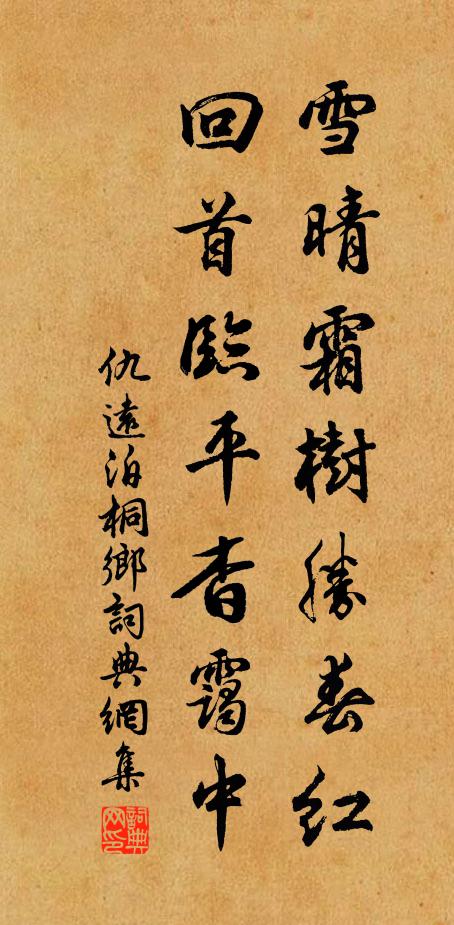 雪晴霜樹勝春紅
回首臨平杳靄中
仇遠泊桐鄉詞典網集
詞典网印